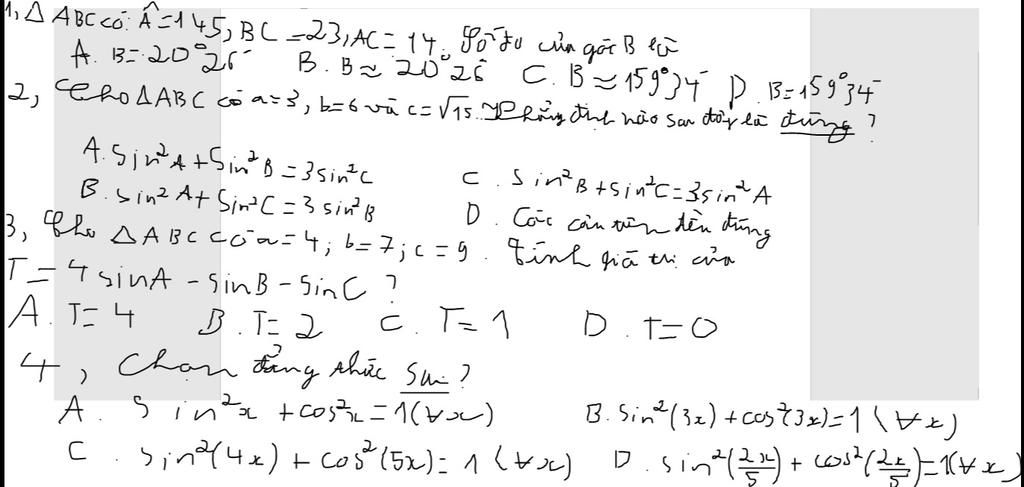 1, Δ ABC có: Â=145, BC=23, AC=14. Số đo của góc B là
A. B=20°26' B. B≈20°26' C. B≈159°34' D. B=159°34'
2, Cho ΔABC có a=3, b=6 và c=√15. Khẳng định nào sau đây là đúng?
A. Sin²A+Sin²B=3sin²C C. Sin²B+sin²C=3sin²A
B. sin²A+Sin²C=3sin²B D. Các câu trên đều đúng
3, Cho ΔABC có a=4; b=7; c=9. Tính giá trị của
T=4sinA-sinB-SinC?
A. T=4 B. T=2 C. T=1 D. T=0
4, Chọn đẳng thức Sai?
A. Sin²x+cos²x=1(∀x) B. Sin²(3x)+cos²(3x)=1(∀x)
C. Sin²(4x)+cos²(5x)=1(∀x) D. sin²(2x/5)+cos²(2x/5)=1(∀x)